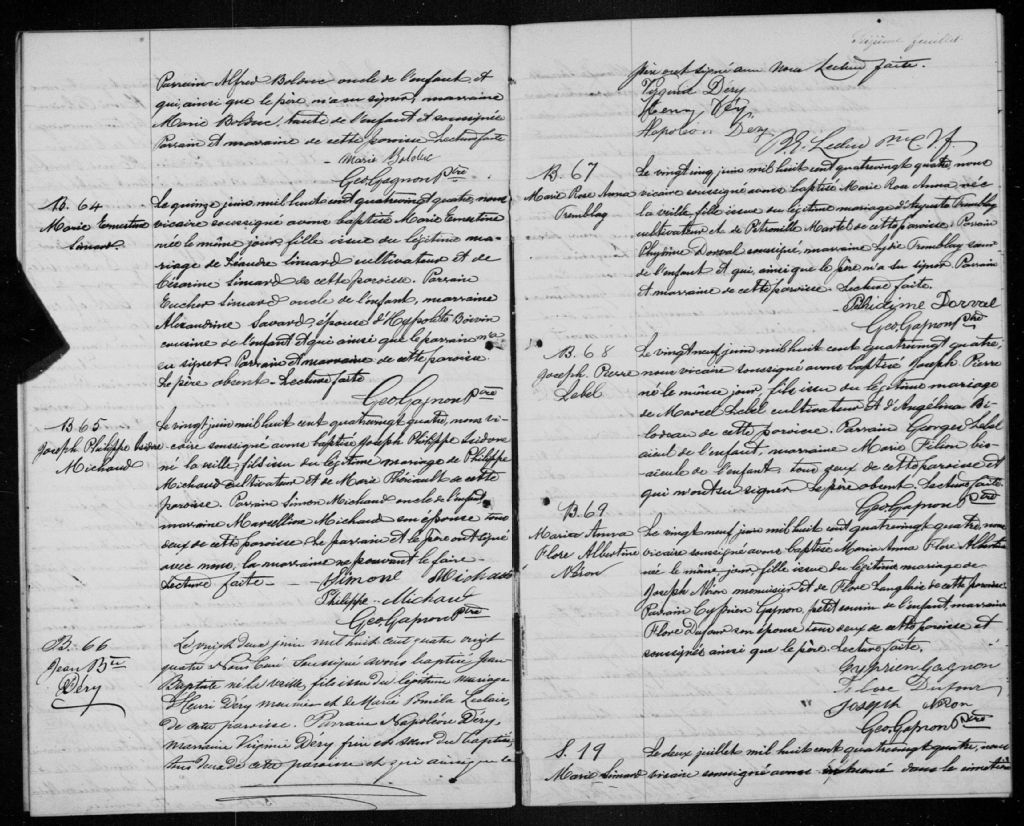 Parrain Alfred Bolduc oncle de l'enfant, et
qui, ainsi que le père, n'a su signer, marraine
Marie Bolduc, tante de l'enfant et soussignée
Parrain et marraine de cette paroisse Lecture faite
- Marie Bolduc
Geo Gagnon Ptre
B. 64
Marie Ernestine
Simard
Le quinze juin mil huit cent quatrevingt quatre, nous
vicaire soussigné avons baptisé Marie Ernestine
née le même jour, fille issue du légitime ma-
riage de Léandre Simard cultivateur et de
Césarine Simard de cette paroisse. Parrain
Eucher Simard oncle de l'enfant, marraine
Alexandrine Savard, épouse d'Hyppolite Boivin
cousine de l'enfant et qui ainsi que le parrain n'a
su signer Parrain et marraine de cette paroisse
Le père absent - Lecture faite
Geo Gagnon Ptre
B 65
Joseph Philippe Isidore
Michaud
Le vingt juin mil huit cent quatrevingt quatre, nous vi-
caire soussigné avons baptisé Joseph Philippe Isidore
né la veille, fils issu du légitime mariage de Philippe
Michaud cultivateur et de Marie Thériault de cette
paroisse. Parrain Simon Michaud oncle de l'enfant
maraine Marcelline Michaud son épouse tous
deux de cette paroisse Le parrain et le père ont signé
avec nous, la maraine ne pouvant le faire -
Lecture faite - Simone Michaud
Philippe - Michaud
Geo Gagnon Ptre
B. 66
Jean Bte
Déry
Le vingt deux juin mil huit cent quatre vingt
quatre Nous Curé Soussigné avons baptisé Jean
Baptiste né la veille, fils issu du légitime mariage
d'Henri Déry meunier et de Marie Leclair,
de cette paroisse. Parrain Napoléon Déry,
marraine Virginie Déry frère et sœur du baptisé,
tous deux de cette paroisse et qui ainsi que le
père ont signé avec Nous Lecture faite.
Virginie Déry
Henry Déry
Napoléon Déry
B. 67
Marie Rose Anna
Tremblay
Le vingt cinq juin mil huit cent quatrevingt quatre, nous
vicaire soussigné avons baptisé Marie Rose Anna née
la veille, fille issue du légitime mariage d'Auguste Tremblay
cultivateur et de Pétronille Martel de cette paroisse Parrain
Phydime Dorval soussigné, marraine Lydie Tremblay sœur
de l'enfant et qui, ainsi que le père n'a su signer Parrain
et marraine de cette paroisse - Lecture faite.
Phidime Dorval
Geo. Gagnon Ptre
B. 68
Joseph Pierre
Lebel
Le vingt neuf juin mil huit cent quatrevingt quatre,
nous vicaire soussigné avons baptisé Joseph Pierre
né le même jour, fils issu du légitime mariage
de Marcel Lebel cultivateur et d'Angélina Bi-
lodeau de cette paroisse. Parrain Georges Lebel
aieul de l'enfant, marraine Marie Pilon bis-
aieule de l'enfant, tous deux de cette paroisse et
qui n'ont su signer le père absent Lecture faite
Geo. Gagnon Ptre
B. 69
Marie Anna
Flore Albertine
Néron
Le vingt neuf juin mil huit cent quatrevingt quatre, nous
vicaire soussigné avons baptisé Marie Anna Flore Albertine
née le même jour, fille issue du légitime mariage de
Joseph Néron menuisier et de Flore Langlais de cette paroisse
Parrain Cyprien Gagnon, petit cousin de l'enfant, marraine
Flore Dufour son épouse tous deux de cette paroisse et
soussignés ainsi que le père. Lecture faite,
Cyprien Gagnon
Flore Dufour
Joseph Néron
Geo. Gagnon Ptre
S. 19
Marie Simard
Le deux juillet mil huit cent quatrevingt quatre, nous
vicaire soussigné avons inhumé dans le cimetière